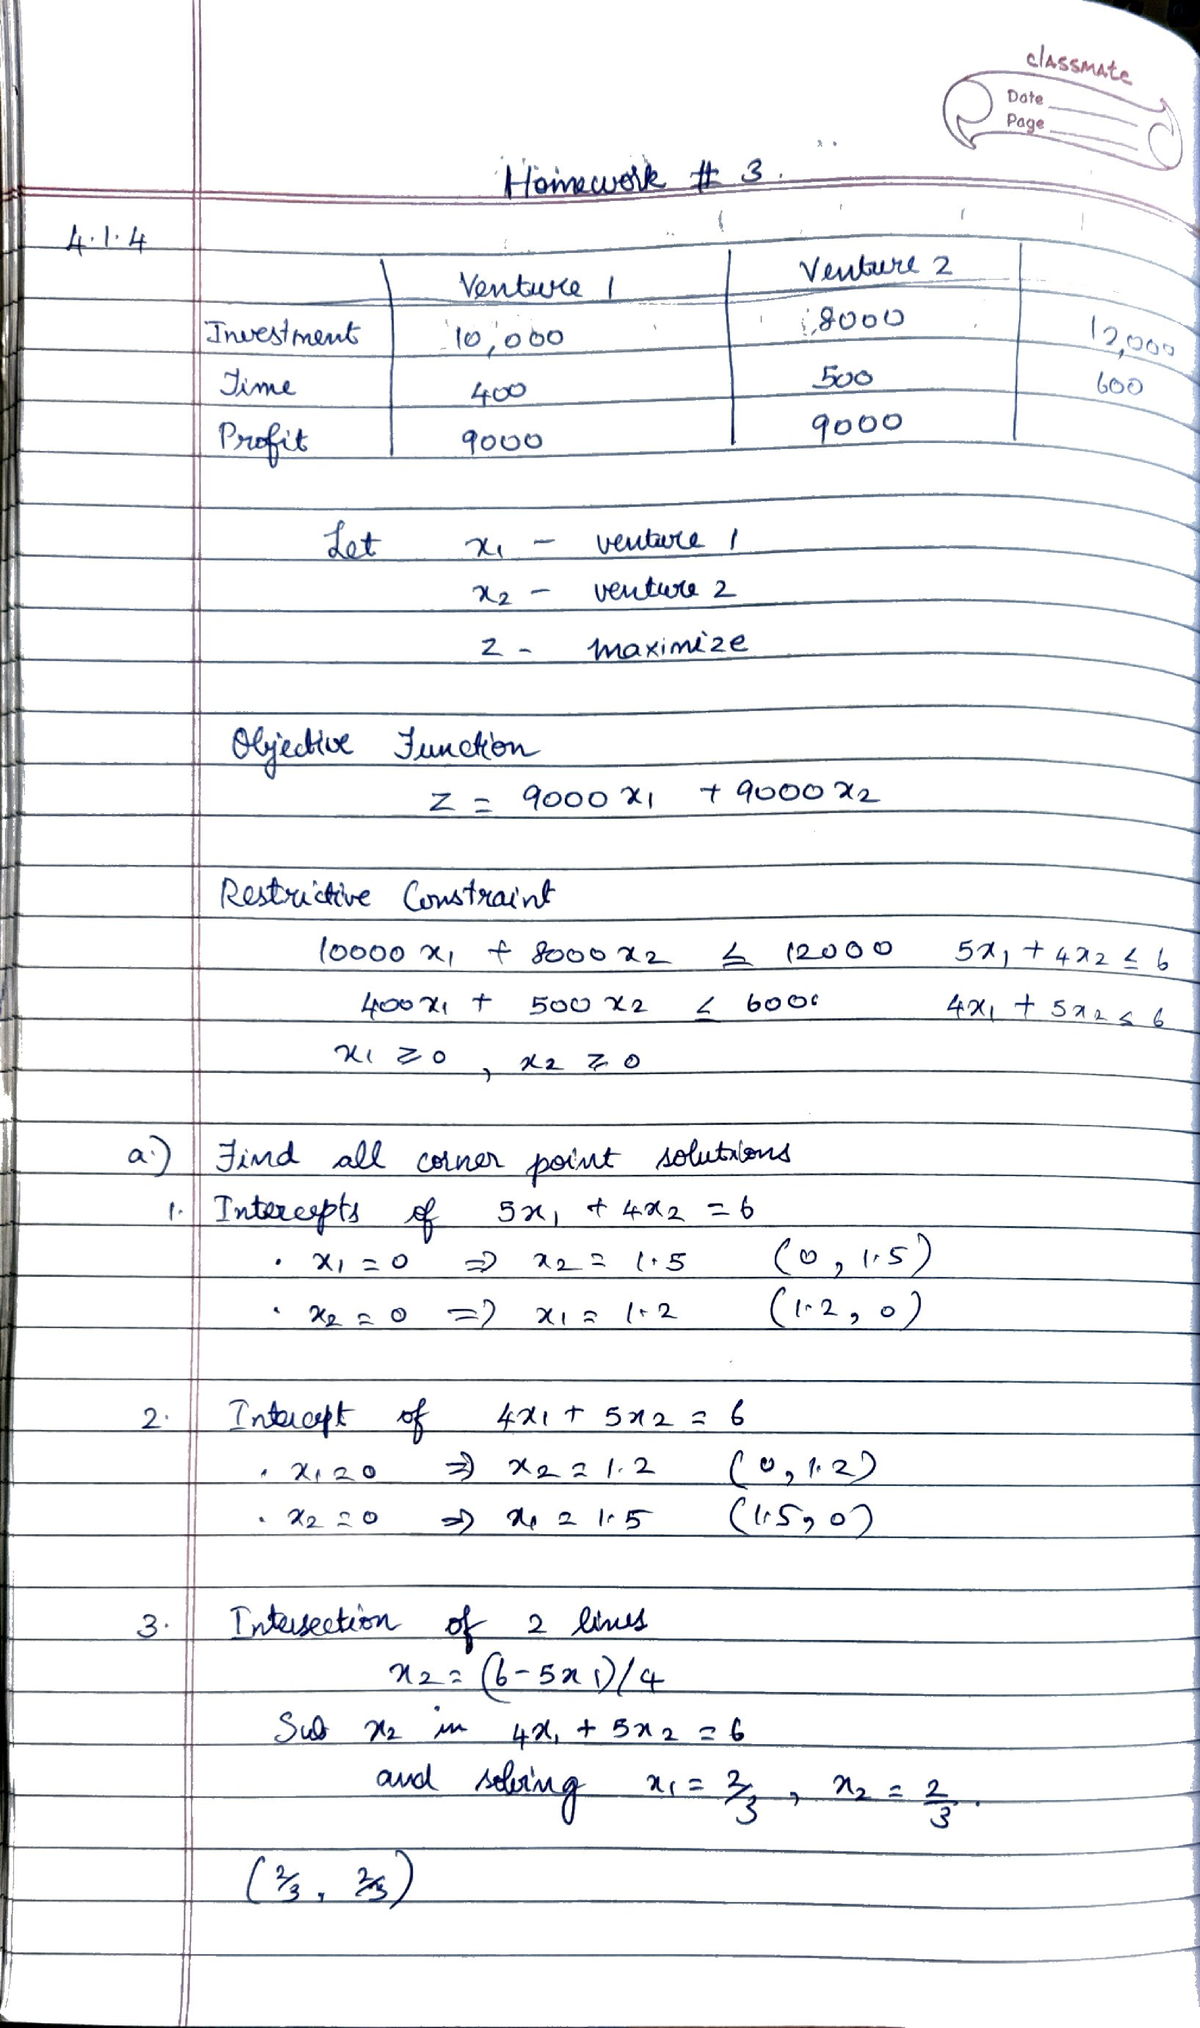 classmate
Date
Page
Homework # 3.
4.1.4
Venture 1 Venture 2
Investment 10,000 8000 12,000
Time 400 500 600
Profit 9000 9000
Let x₁ - venture 1
x₂ - venture 2
Z - maximize
Objective Function
Z = 9000 x₁ + 9000 x₂
Restrictive Constraint
10000 x₁ + 8000 x₂ ≤ 12000 5x₁ + 4x₂ ≤ 6
400x₁ + 500 x₂ ≤ 6000 4x₁ + 5x₂ ≤ 6
x₁ ≥ 0, x₂ ≥ 0
a.) Find all corner point solutions
1. Intercepts of 5x₁ + 4x₂ = 6
• x₁ = 0 ⇒ x₂ = 1.5 (0, 1.5)
• x₂ = 0 ⇒ x₁ = 1.2 (1.2, 0)
2. Intercept of 4x₁ + 5x₂ = 6
• x₁ = 0 ⇒ x₂ = 1.2 (0, 1.2)
• x₂ = 0 ⇒ x₁ = 1.5 (1.5, 0)
3. Intersection of 2 lines
x₂ = (6-5x₁)/4
Sub x₂ in 4x₁ + 5x₂ = 6
and solving x₁ = 2/3, x₂ = 2/3.
(2/3, 2/3)